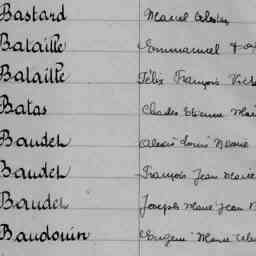 Bastard Marcel
Bataille Emmanuel
Bataille Félix François Vict
Batas Charles Etienne Mari
Baudet Alexis Louis Marie
Baudet François Jean Marie
Baudet Joseph Marie Jean
Baudouin Eugène Marie